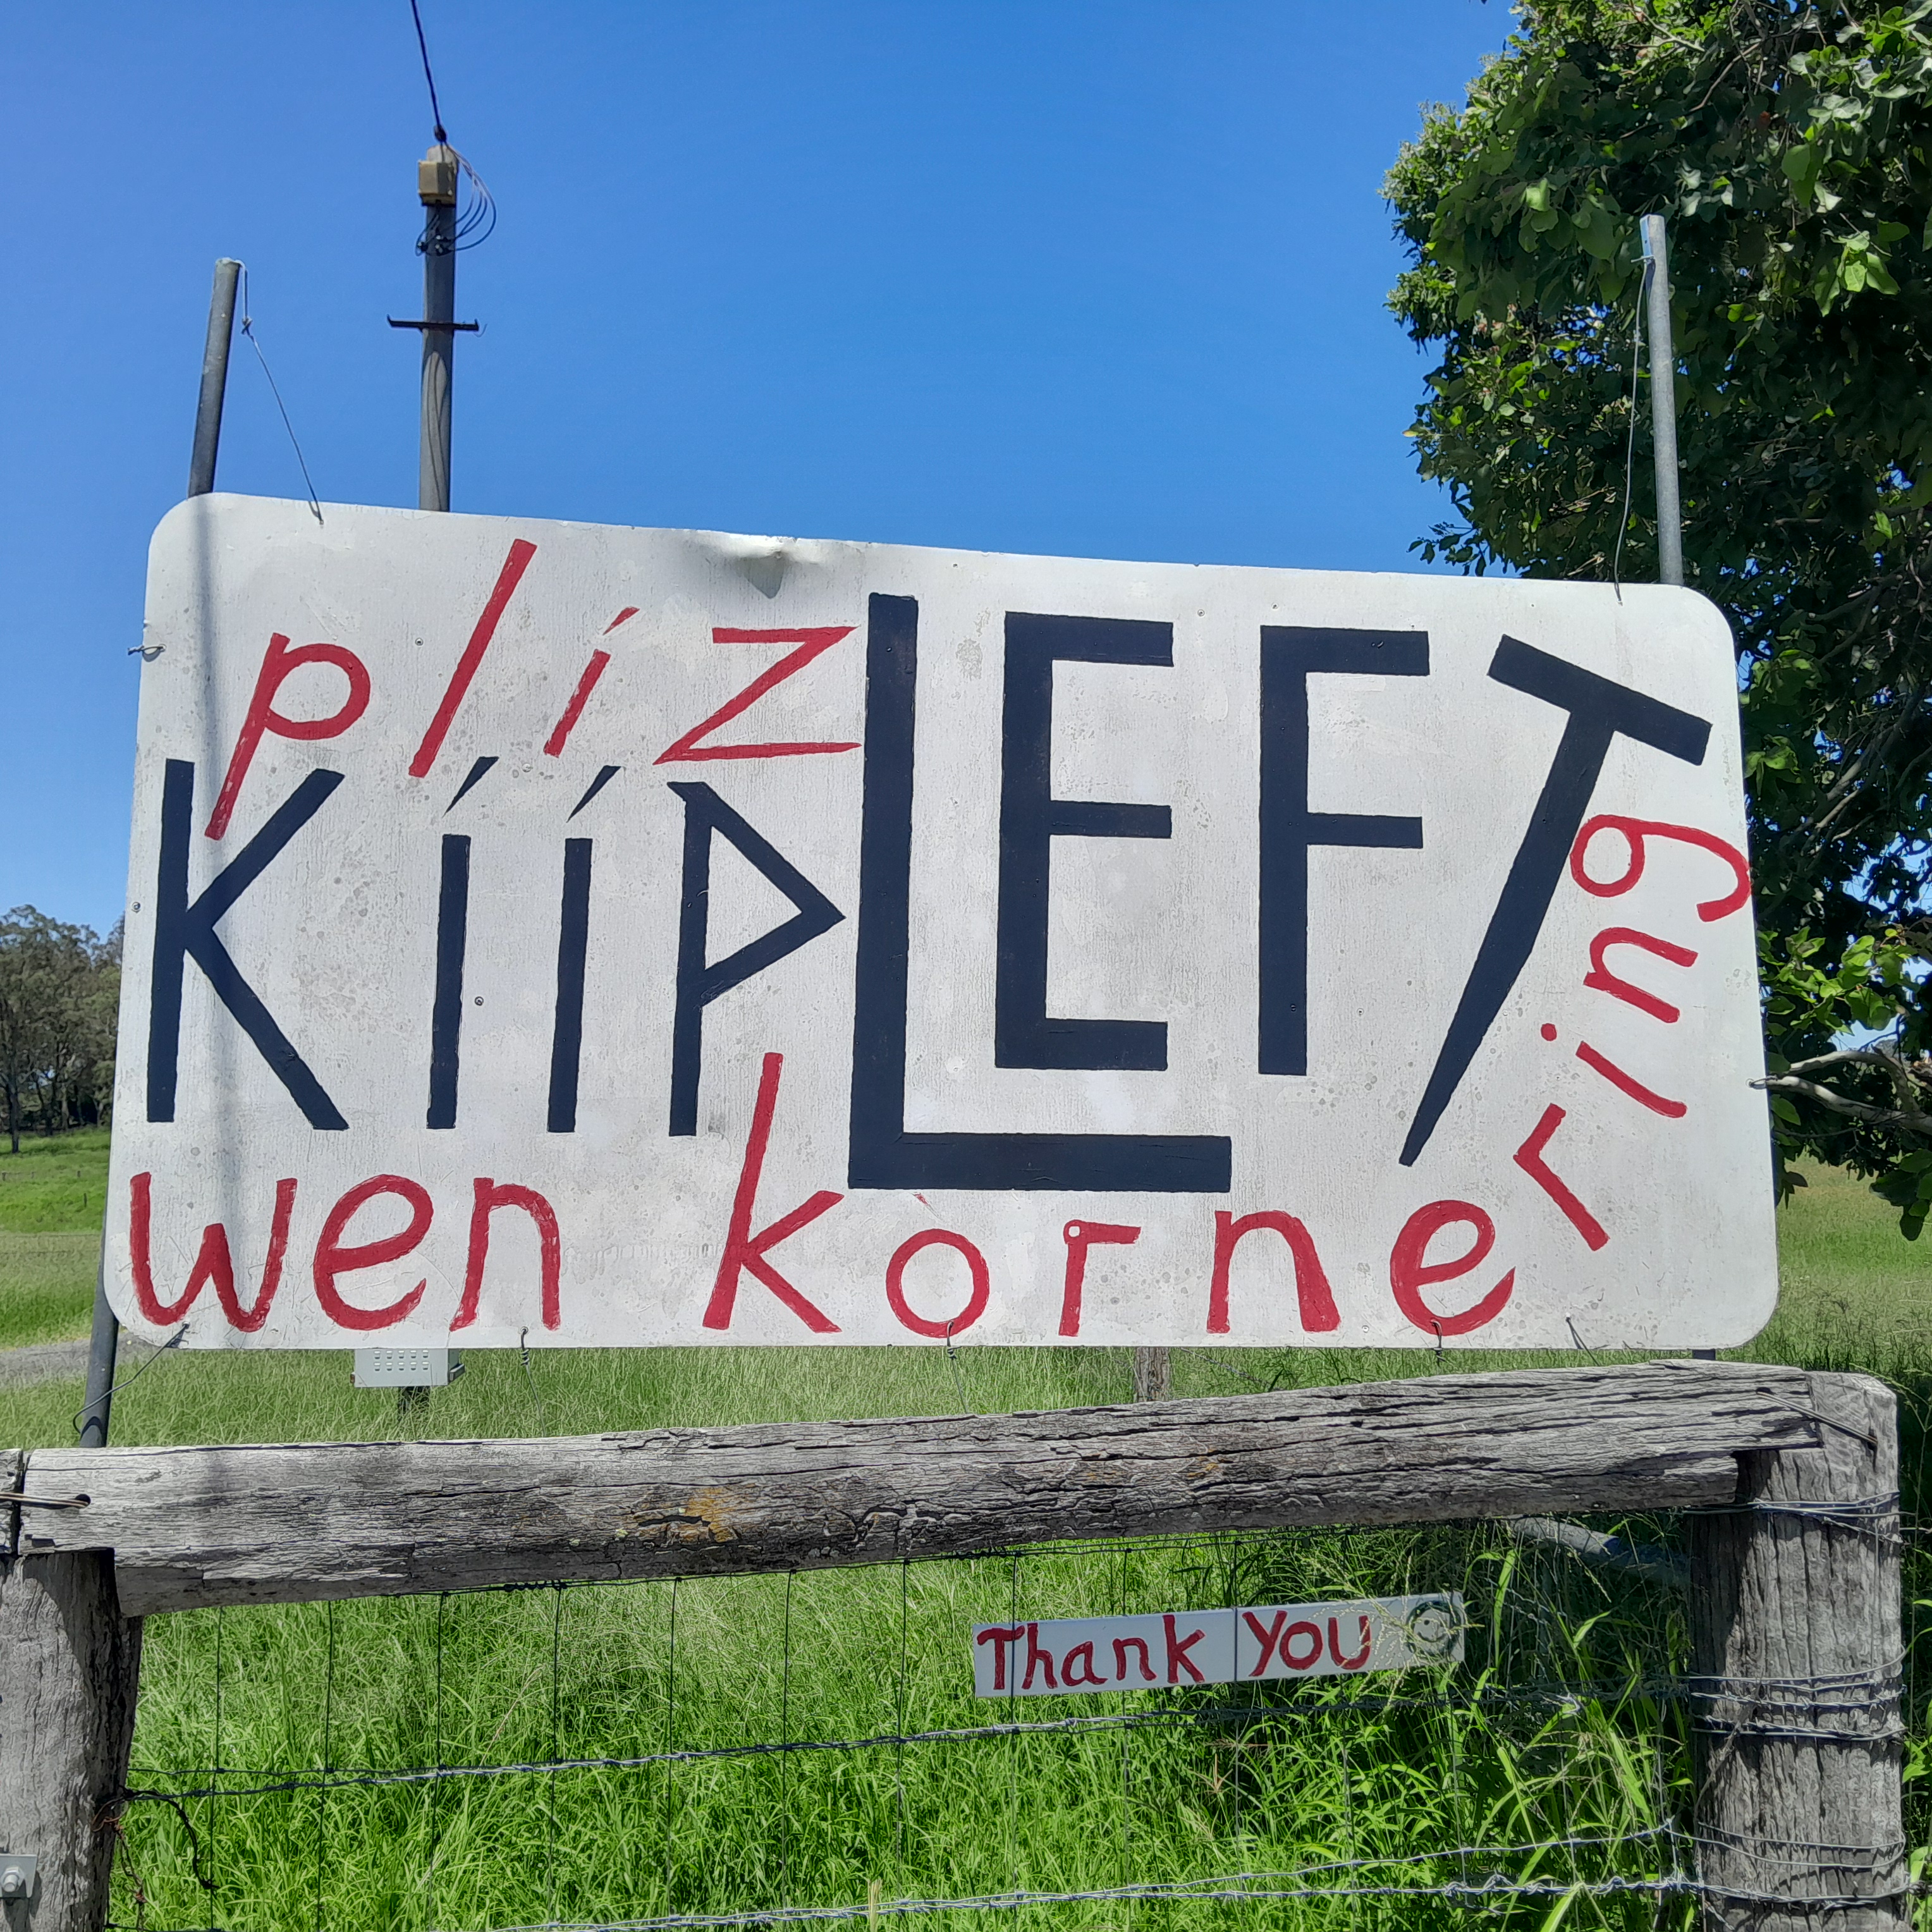 plíz
KíípLEFT
wen kòrnering
Thank You